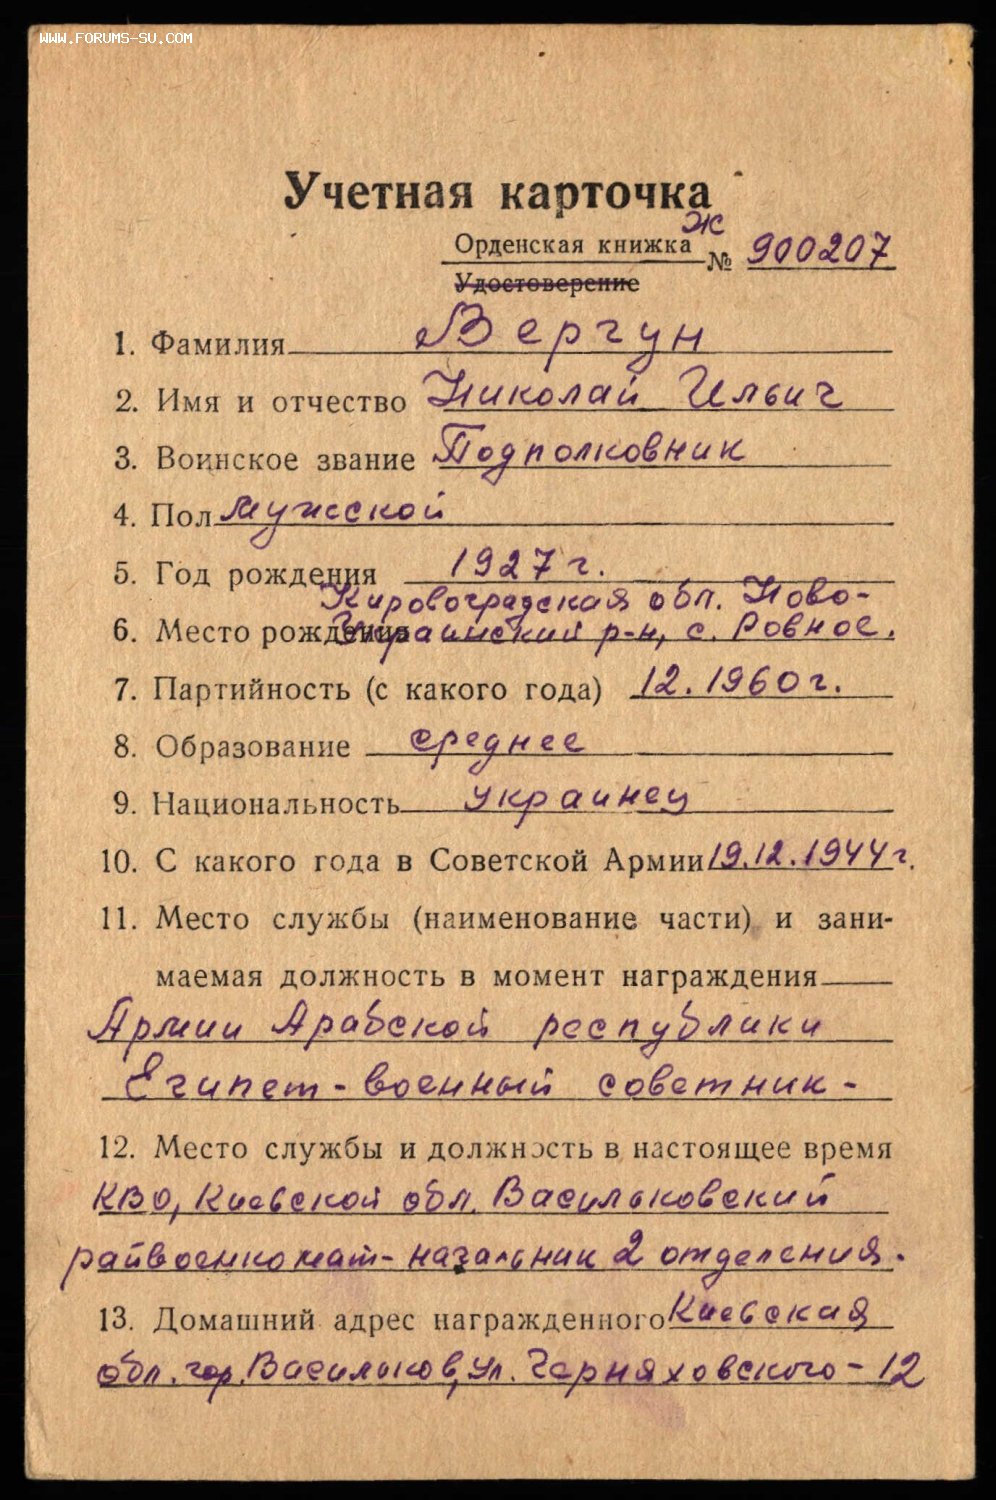 WWW.FORUMS-SU.COM
Учетная карточка
Орденская книжка Ж № 900207
Удостоверение
1. Фамилия Вергун
2. Имя и отчество Николай Ильич
3. Воинское звание Подполковник
4. Пол мужской
5. Год рождения 1927 г.
Кировоградская обл. Ново-
6. Место рождения Украинский р-н, с. Ровное.
7. Партийность (с какого года) 12.1960 г.
8. Образование среднее
9. Национальность украинец
10. С какого года в Советской Армии 19.12.1944 г.
11. Место службы (наименование части) и зани-
маемая должность в момент награждения
Армии Арабской республики
Египет - военный советник -
12. Место службы и должность в настоящее время
КВО, Киевской обл. Васильковский
райвоенкомат - начальник 2 отделения.
13. Домашний адрес награжденного Киевская
обл. гор. Васильков, ул. Черняховского - 12